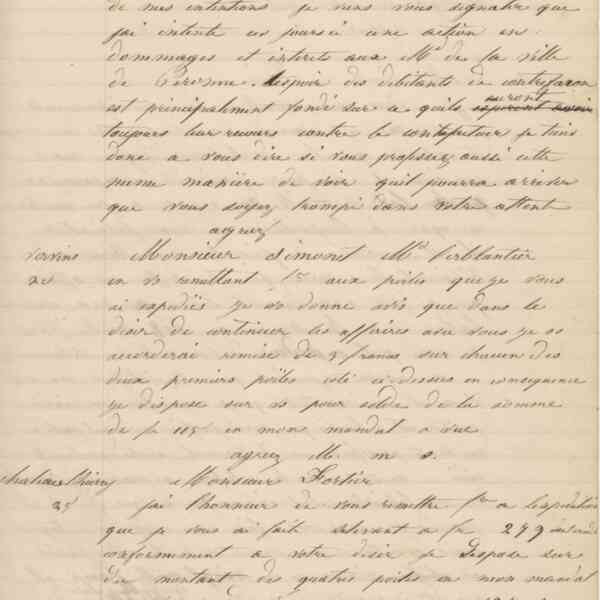 de mes intentions je viens vous signaler que
j'ai intenté ces jours ci une action en
dommages et interets aux Md de la ville
de Peronne. Lespoir des debitants de contrefacon
est principalement fondé sur ce quils auront
toujours leur recours contre le contrefacteur je tiens
donc a vous dire si vous professez aussi cette
meme maniere de voir quil pourra arriver
que vous soyez trompé dans votre attente
agreez
Vervins Monsieur Simont Md Ferblantier
25 en vs remettant fre aux poeles que je vous
ai expediés je vs donne avis que dans le
desir de continuer les affaires avec vous je vs
accorderai remise de 5 francs sur chacun des
deux premiers poëles coté ci dessus en consequence
je dispose sur vs pour solde de la somme
de fr 115 en mon mandat a vue
agreez M. m s.
chateau thierry Monsieur Fortier
25 jai lhonneur de vous remettre fre a lexpedition
que je vous ai faite selevant a fr 279
conformement a votre desir je dispose sur
du montant des quatre poeles en mon mandat